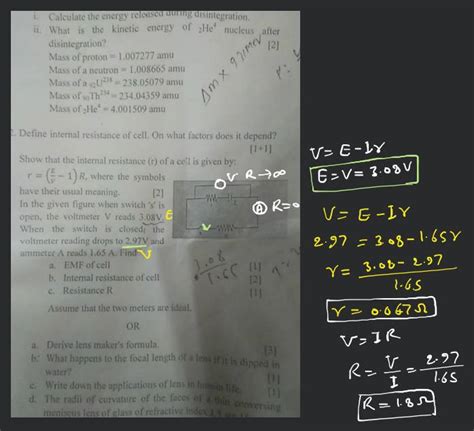 i. Calculate the energy released during disintegration.
ii. What is the kinetic energy of ₂He⁴ nucleus after
disintegration? [2]
Mass of proton = 1.007277 amu
Mass of a neutron = 1.008665 amu
Mass of a ₉₂U²³⁸ = 238.05079 amu
Mass of ₉₀Th²³⁴ = 234.04359 amu
Mass of ₂He⁴ = 4.001509 amu
Δm × 931 MeV
2. Define internal resistance of cell. On what factors does it depend?
[1+1]
Show that the internal resistance (r) of a cell is given by:
r = (E/V − 1) R, where the symbols
have their usual meaning. [2]
In the given figure when switch 's' is
open, the voltmeter V reads 3.08V. E
When the switch is closed, the
voltmeter reading drops to 2.97V and
ammeter A reads 1.65 A. Find V
a. EMF of cell [1]
b. Internal resistance of cell [2]
c. Resistance R [1]
Assume that the two meters are ideal.
OR
a. Derive lens maker's formula. [3]
b. What happens to the focal length of a lens if it is dipped in
water? [1]
c. Write down the applications of lens in human life. [1]
d. The radii of curvature of the faces of a thin converging
meniscus lens of glass of refractive index
V R→∞
A R=0
V
3.08
1.65
V = E - Ir
E = V = 3.08V
V = E - Ir
2.97 = 3.08 - 1.65r
r = 3.08 - 2.97
1.65
r = 0.067Ω
V = IR
R = V/I = 2.97/1.65
R = 1.8Ω